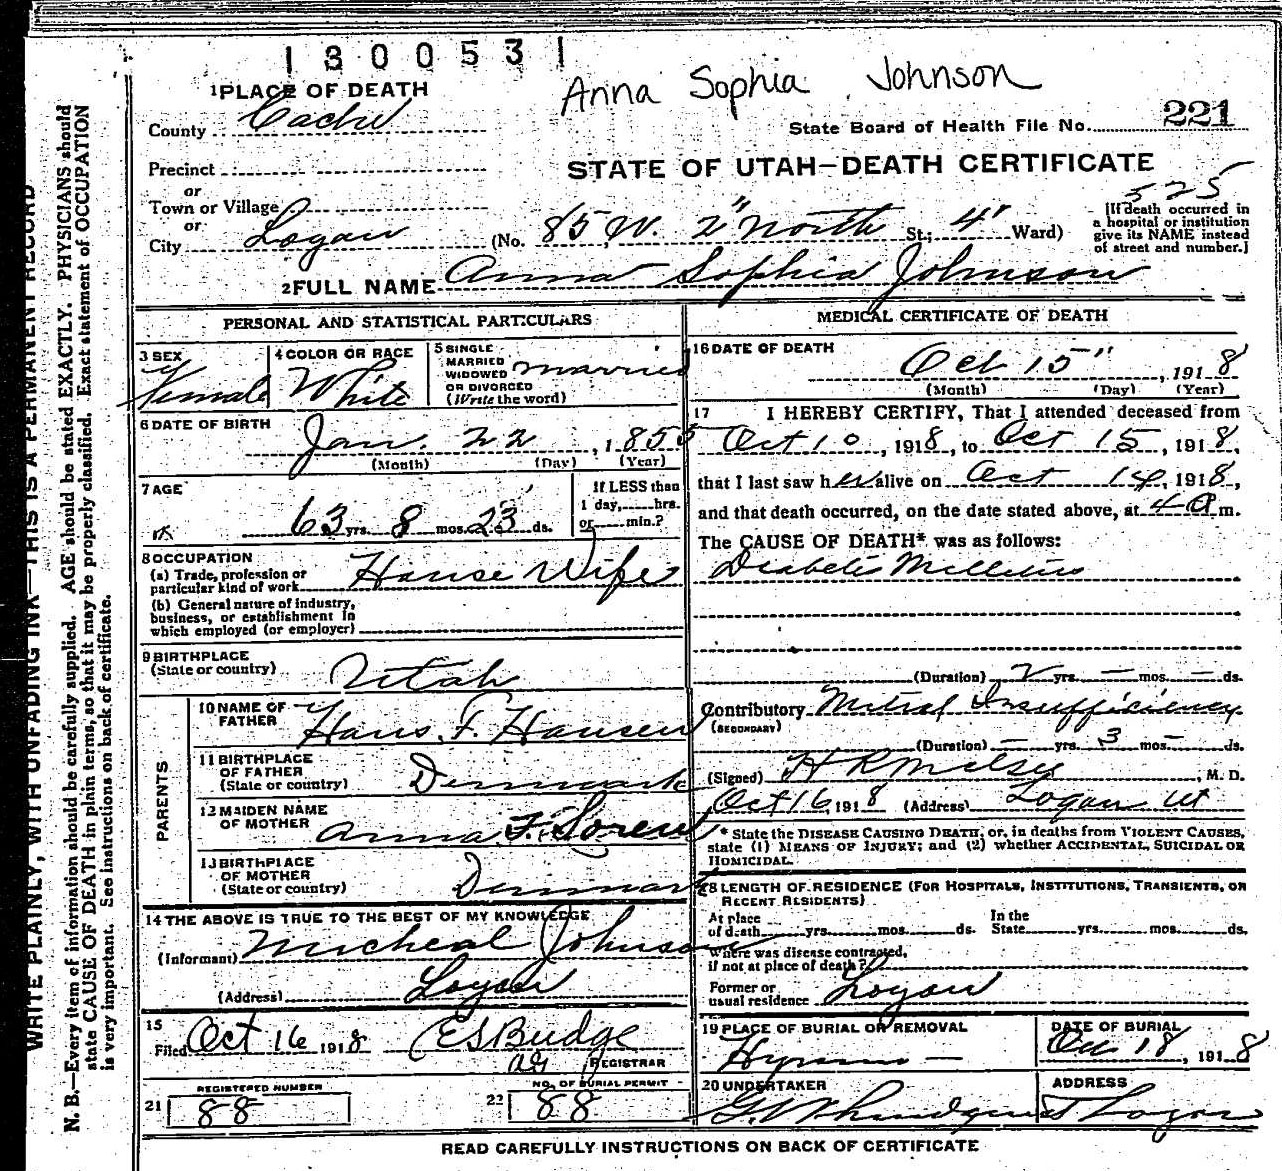 1300531
Anna Sophia Johnson
1 PLACE OF DEATH
County Cache
State Board of Health File No. 221
Precinct
STATE OF UTAH—DEATH CERTIFICATE
or
Town or Village
525
or
City Logan (No. 85 W. 2" North St.; 4" Ward)
[If death occurred in
a hospital or institution
give its NAME instead
of street and number.]
2 FULL NAME Anna Sophia Johnson
PERSONAL AND STATISTICAL PARTICULARS
3 SEX
Female
4 COLOR OR RACE
White
5 SINGLE
MARRIED
WIDOWED
OR DIVORCED
(Write the word)
married
6 DATE OF BIRTH
Jan. 22, 1855
(Month) (Day) (Year)
7 AGE
63 yrs. 8 mos. 23 ds.
If LESS than
1 day, hrs.
or min.?
8 OCCUPATION
(a) Trade, profession or
particular kind of work House Wife
(b) General nature of industry,
business, or establishment in
which employed (or employer)
9 BIRTHPLACE
(State or country) Utah
PARENTS
10 NAME OF
FATHER Hans F. Hansen
11 BIRTHPLACE
OF FATHER
(State or country) Denmark
12 MAIDEN NAME
OF MOTHER Anna F.
13 BIRTHPLACE
OF MOTHER
(State or country) Denmark
14 THE ABOVE IS TRUE TO THE BEST OF MY KNOWLEDGE
(Informant) Micheal Johnson
(Address) Logan
15
Filed Oct 16 1918 E S Budge
REGISTRAR
REGISTERED NUMBER
21 88
NO. OF BURIAL PERMIT
22 88
MEDICAL CERTIFICATE OF DEATH
16 DATE OF DEATH
Oct 15", 1918
(Month) (Day) (Year)
17 I HEREBY CERTIFY, That I attended deceased from
Oct 10, 1918, to Oct 15, 1918,
that I last saw her alive on Oct 14, 1918,
and that death occurred, on the date stated above, at 4 a m.
The CAUSE OF DEATH* was as follows:
Diabetis Mellitus
(Duration) 2 yrs. — mos. — ds.
Contributory Mitral Insufficiency
(SECONDARY)
(Duration) — yrs. 3 mos. — ds.
(Signed) H R , M. D.
Oct 16 1918 (Address) Logan Ut
* State the DISEASE CAUSING DEATH, or, in deaths from VIOLENT CAUSES,
state (1) MEANS OF INJURY; and (2) whether ACCIDENTAL, SUICIDAL OR
HOMICIDAL.
18 LENGTH OF RESIDENCE (FOR HOSPITALS, INSTITUTIONS, TRANSIENTS, OR
RECENT RESIDENTS)
At place
of death yrs. mos. ds.
In the
State yrs. mos. ds.
Where was disease contracted,
if not at place of death?
Former or
usual residence Logan
19 PLACE OF BURIAL OR REMOVAL
Hyrum —
DATE OF BURIAL
18, 1918
20 UNDERTAKER
ADDRESS
Logan
READ CAREFULLY INSTRUCTIONS ON BACK OF CERTIFICATE
WRITE PLAINLY, WITH UNFADING INK—THIS IS A PERMANENT RECORD
N. B.—Every item of information should be carefully supplied. AGE should be stated EXACTLY. PHYSICIANS should
state CAUSE OF DEATH in plain terms, so that it may be properly classified. Exact statement of OCCUPATION
is very important. See instructions on back of certificate.